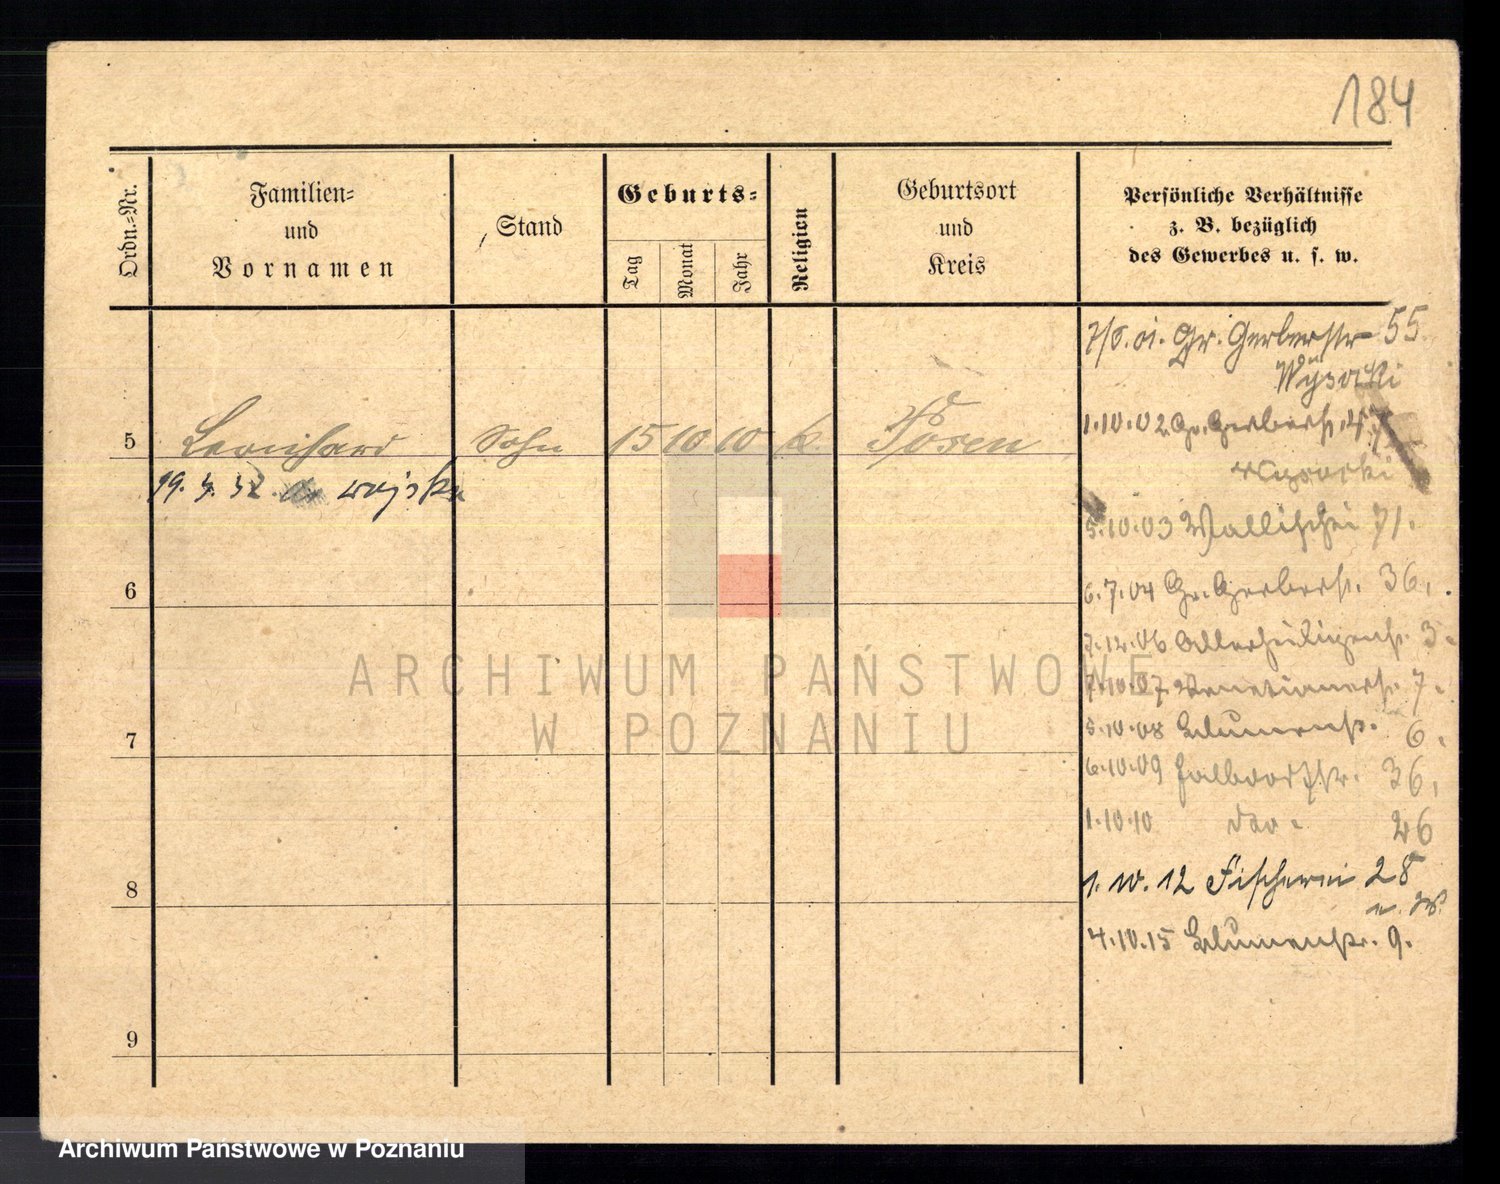 184
Ordn.=Nr.
Familien=
und
Vornamen
Stand
Geburts=
Tag
Monat
Jahr
Religion
Geburtsort
und
Kreis
Persönliche Verhältnisse
z. B. bezüglich
des Gewerbes u. s. w.
Gr. Gerberstr 55
Wysocki
5 Leonhard Sohn 15 10 10 k. Posen
19. 4. 32. do wojska
1.10.02 Gr. Gerberstr.
Wysocki
5.10.03 Wallischei 71.
6
6.7.04 Gr. Gerberstr. 36.
7.12.06 Allerheiligenstr. 3.
7.10.07 Venetianerstr. 7.
7
5.10.08 Blumenstr. 6.
6.10.09 Halbdorfstr. 36.
1.10.10 26
8
1.10.12 Fischerei 28
4.10.15 Blumenstr. 9.
9
ARCHIWUM PAŃSTWOWE
W POZNANIU
Archiwum Państwowe w Poznaniu